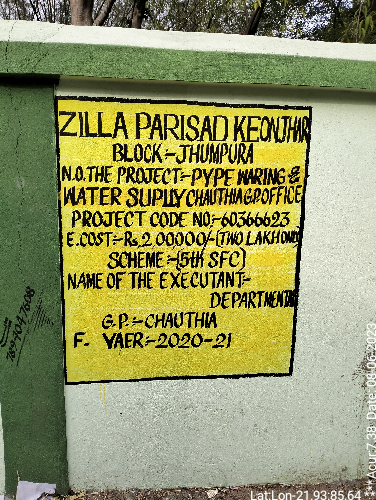 ZILLA PARISAD KEONJHAR
BLOCK:-JHUMPURA
N.O.THE PROJECT:-PYPE WARING &
WATER SUPLLY CHAUTHIA G.P.OFFICE
PROJECT CODE NO:-60366623
E.COST:-Rs,2,00000/-(TWO LAKH ONLY)
SCHEME:-(5th SFC)
NAME OF THE EXECUTANT:-
DEPARTMENTAL
G.P.:-CHAUTHIA
F. YAER:-2020-21
LatLon-21.93,85.64